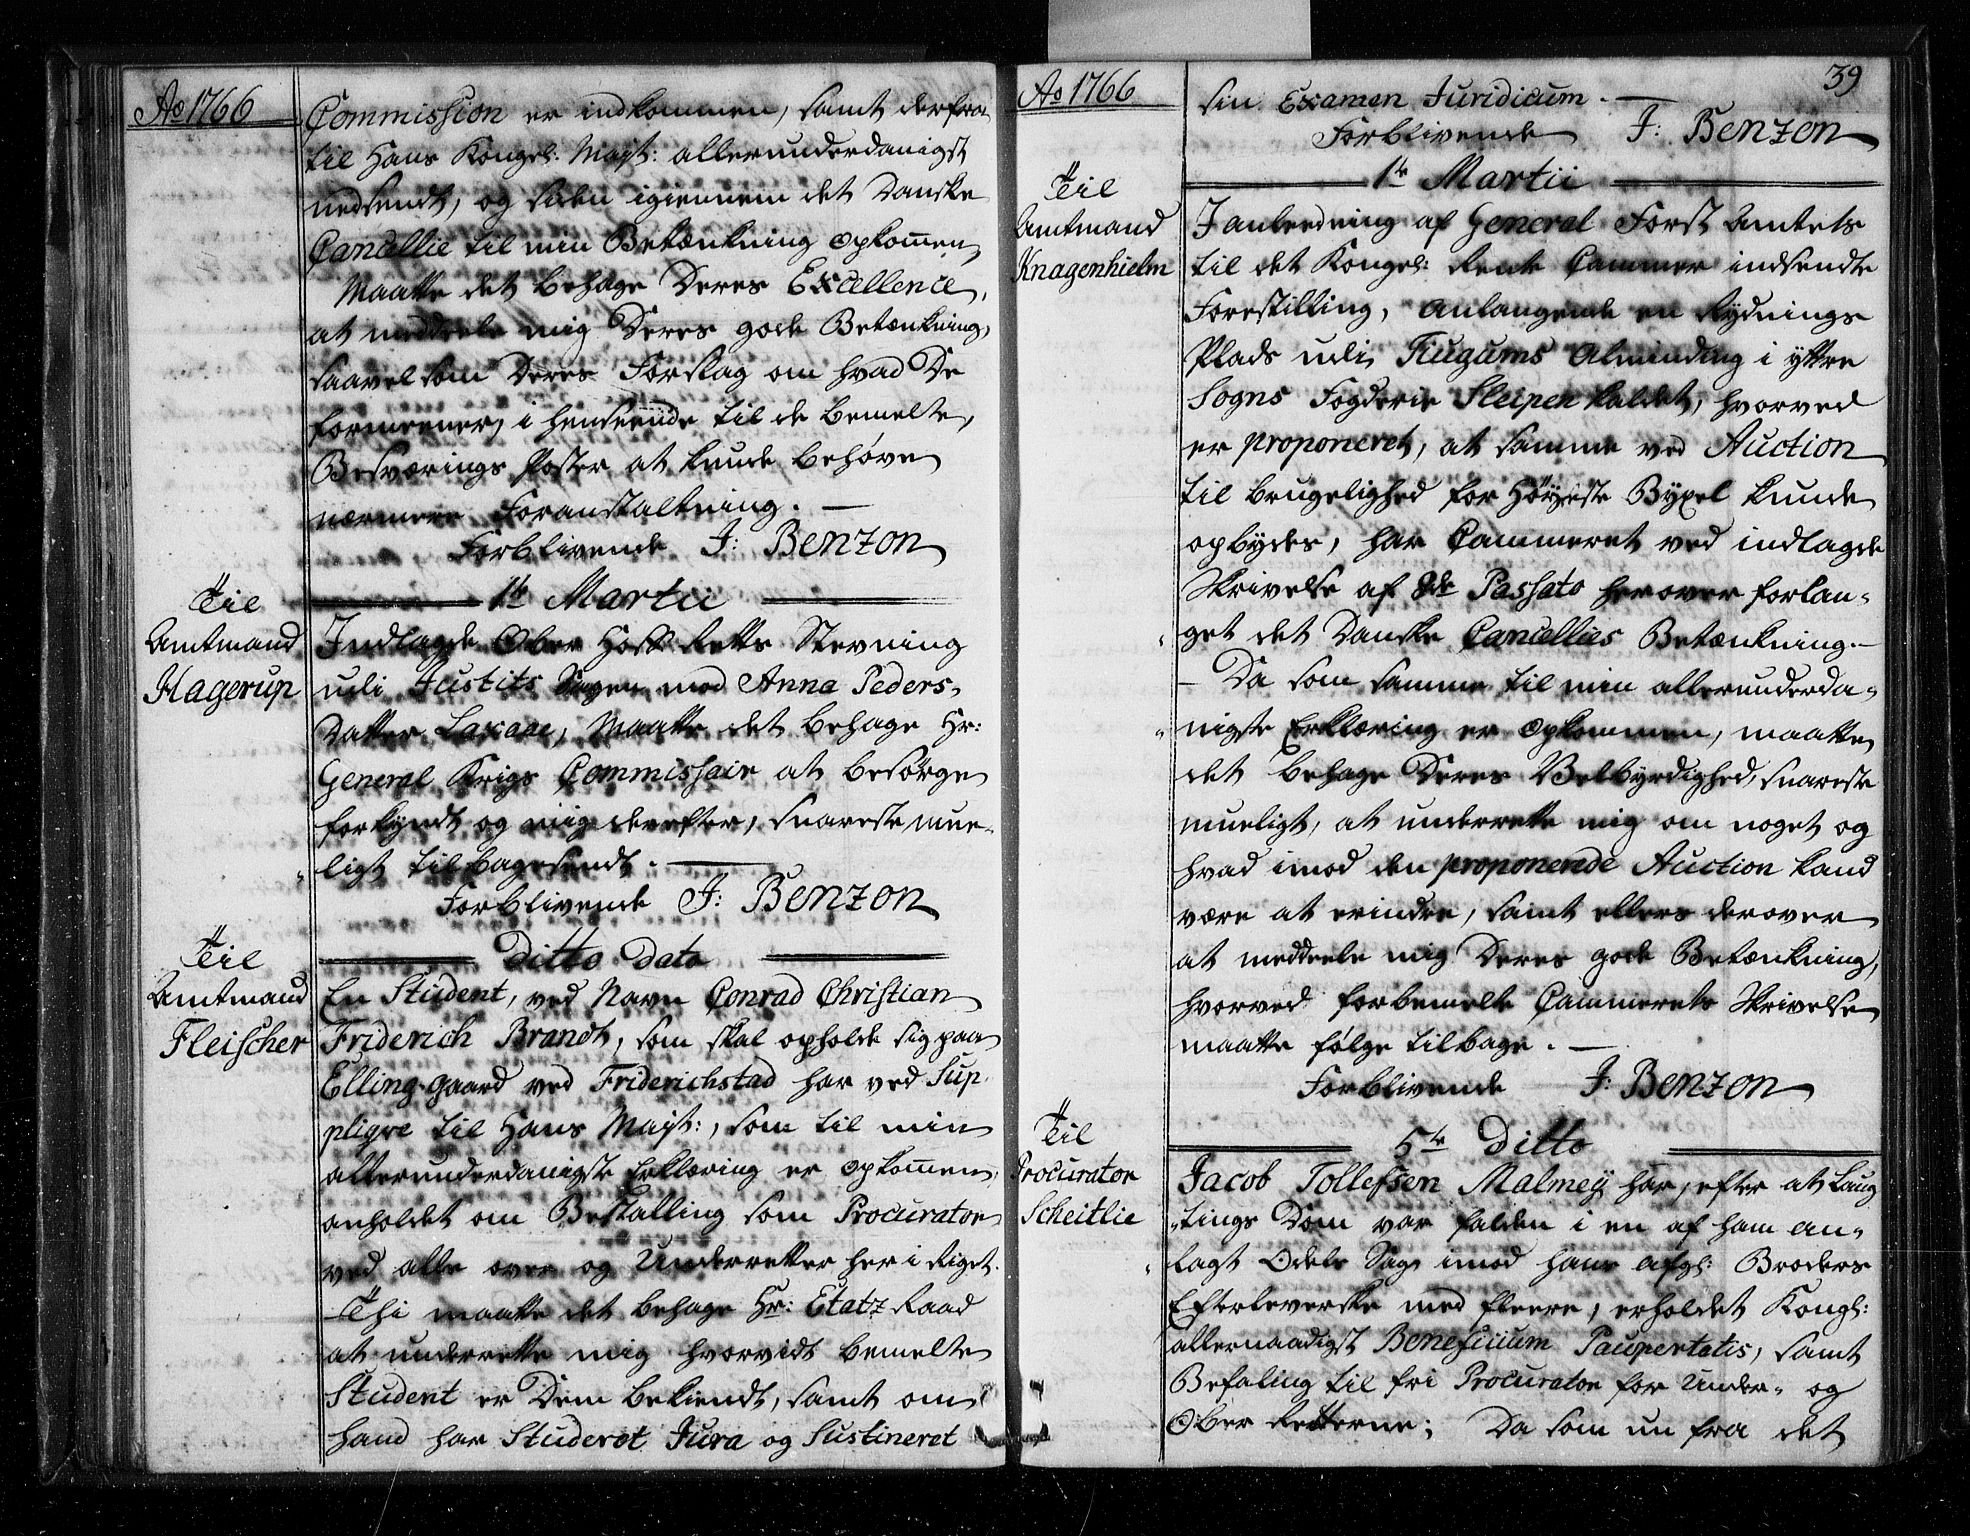 Ao 1766
Commission er indkommen, samt derfra
til Hans Kongel: Mayt: allerunderdanigst
nedsendt, og siden igiennem det Danske
Cancellie til min Betænkning opkommen,
Maatte det behage Deres Excellence,
at meddeele mig Deres gode Betænkning,
saavelsom Deres Forslag om hvad De
formeener, i henseende til de bemelte,
Besværings Poster at kunde behøve
nærmere Foranstaltning. —
Forblivende J: Benzon
Til
Amtmand
Hagerup
1te Martii
Indlagde Ober Hoff Retts Stevning
udi Justits Sagen mod Anna Peders-
Datter Laxaae, Maatte det behage Hr:
General Krigs Commissair at besørge
forkyndt og mig derefter, snareste mue-
ligt tilbagesendt. —
Forblivende J: Benzon
Til
Amtmand
Fleischer
Ditto Dato
En Student, ved Navn Conrad Christian
Friderich Brandt, som skal opholde sig paa
Elling-gaard ved Friderichstad har ved Sup-
pliqve til Hans Mayt:, som til min
allerunderdanigste Erklæring er opkommen,
anholdet om Bestalling som Procurator
ved alle over og Underretter her i Riget.
Thi maatte det behage Hr: Etatz Raad
at underrette mig hvorvidt bemelte
Student er Dem bekiendt, samt om
hand har Studeret Jura og Sustineret
Ao 1766
39
sin Examen Juridicum. —
Forblivende J: Benzon
Til
Amtmand
Knagenhielm
1te Martii
I anleedning af General Forst Amtets
til det Kongel: Rente Cammer indsendte
Forestilling, anlangende en Rydnings
Plads udi Fiugums Alminding i yttre
Sogns Fogderie Sleipen kaldet, hvorved
er proponeret, at samme ved Auction
til brugelighed for høyeste Byxel kunde
opbydes, har Cammeret ved indlagde
Skrivelse af 8de Passato herover forlan-
get det Danske Cancellies Betænkning. —
Da som samme til min allerunderda-
nigste Erklæring er opkommen, maatte
det behage Deres Velbyrdighed, snareste
mueligt, at underrette mig om noget og
hvad imod den proponerede Auction kand
være at erindre, samt ellers derover
at meddeele mig Deres gode Betænkning,
hvorved forbemelte Cammerets Skrivelse
maatte følge tilbage. —
Forblivende J: Benzon
Til
Procurator
Scheitlie
5te Ditto
Jacob Tollefsen Malmey har, efter at Laug
tings Dom var falden i en af ham an-
lagt Odels Sag imod hans afgl: Broders
Efterleverske med fleere, erholdet Kongl:
allernaadigst Beneficium Paupertatis, samt
Befaling til fri Procurator for Under- og
Ober Retterne; Da som nu fra det